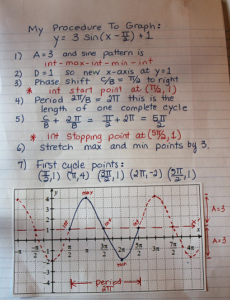 My Procedure To Graph:
y = 3 sin(x - π/2) + 1
1) A = 3 and sine pattern is
int - max - int - min - int
2) D = 1 so new x-axis at y = 1
3) Phase shift C/B = π/2 to right
* int start point at (π/2, 1)
4) Period 2π/B = 2π this is the
length of one complete cycle
5) C/B + 2π/B = π/2 + 2π = 5π/2
* int stopping point at (5π/2, 1)
6) Stretch max and min points by 3.
7) First cycle points:
(π/2, 1) (π, 4) (3π/2, 1) (2π, -2) (5π/2, 1)
y
max
A = 3
int
int
int
A = 3
min
Period
2π